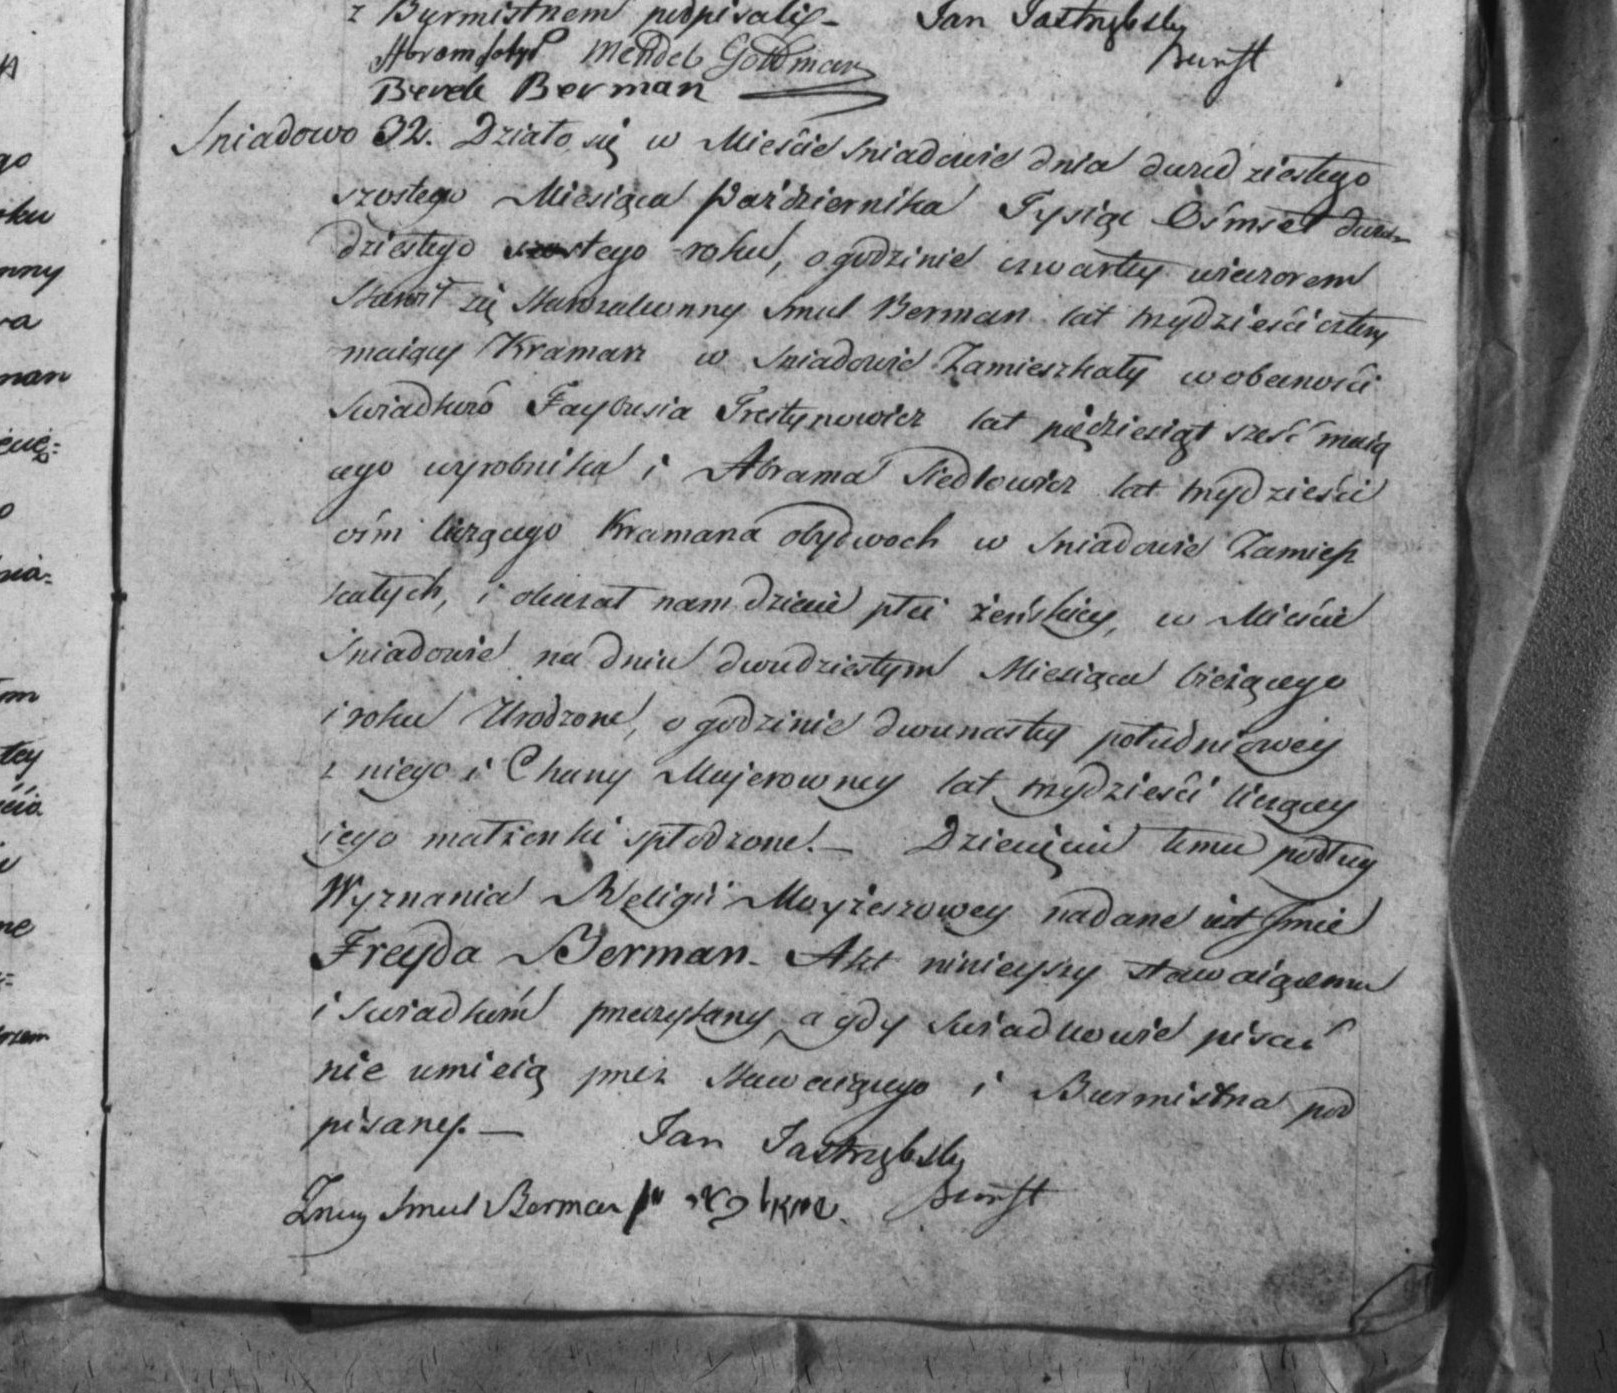 z Burmistrzem podpisali Jan Jastrzębsky
Abram Mendel Goldman Burmst
Berek Berman
Sniadowo 32. Działo się w Mieście Sniadowie dnia dwudziestego
szostego Miesiąca Października Tysiąc Ośmset dwu-
dziestego szostego roku, o godzinie czwartey wieczorem
Stawił się Starozakonny Smul Berman lat trzydzieści cztery
maiący Kramarz w Sniadowie Zamieszkały w obecności
Swiadków Faybusia Trestynowicz lat pięćdziesiąt sześć maią
cego wyrobnika i Abrama Siedlowicz lat trzydzieści
ośm liczącego Kramarza obydwoch w Sniadowie Zamiesz
kałych, i okazał nam dziecie płci żeńskiey, w Mieście
Sniadowie na dniu dwudziestym Miesiąca bieżącego
i roku Urodzone, o godzinie dwunastey południowey
z niego i Chany Majerowney lat trzydzieści liczącey
iego małżonki spłodzone. — Dziecięciu temu podług
Wyznania Religii Moyżeszowey nadane iest Jmie
Freyda Berman. Akt ninieyszy stawaiącemu
i Swiadkóm przeczytany, a gdy Swiadkowie pisać
nie umieią przez Stawaiącego i Burmistrza pod
pisany. — Jan Jastrzębsky
Smul Berman Burmst